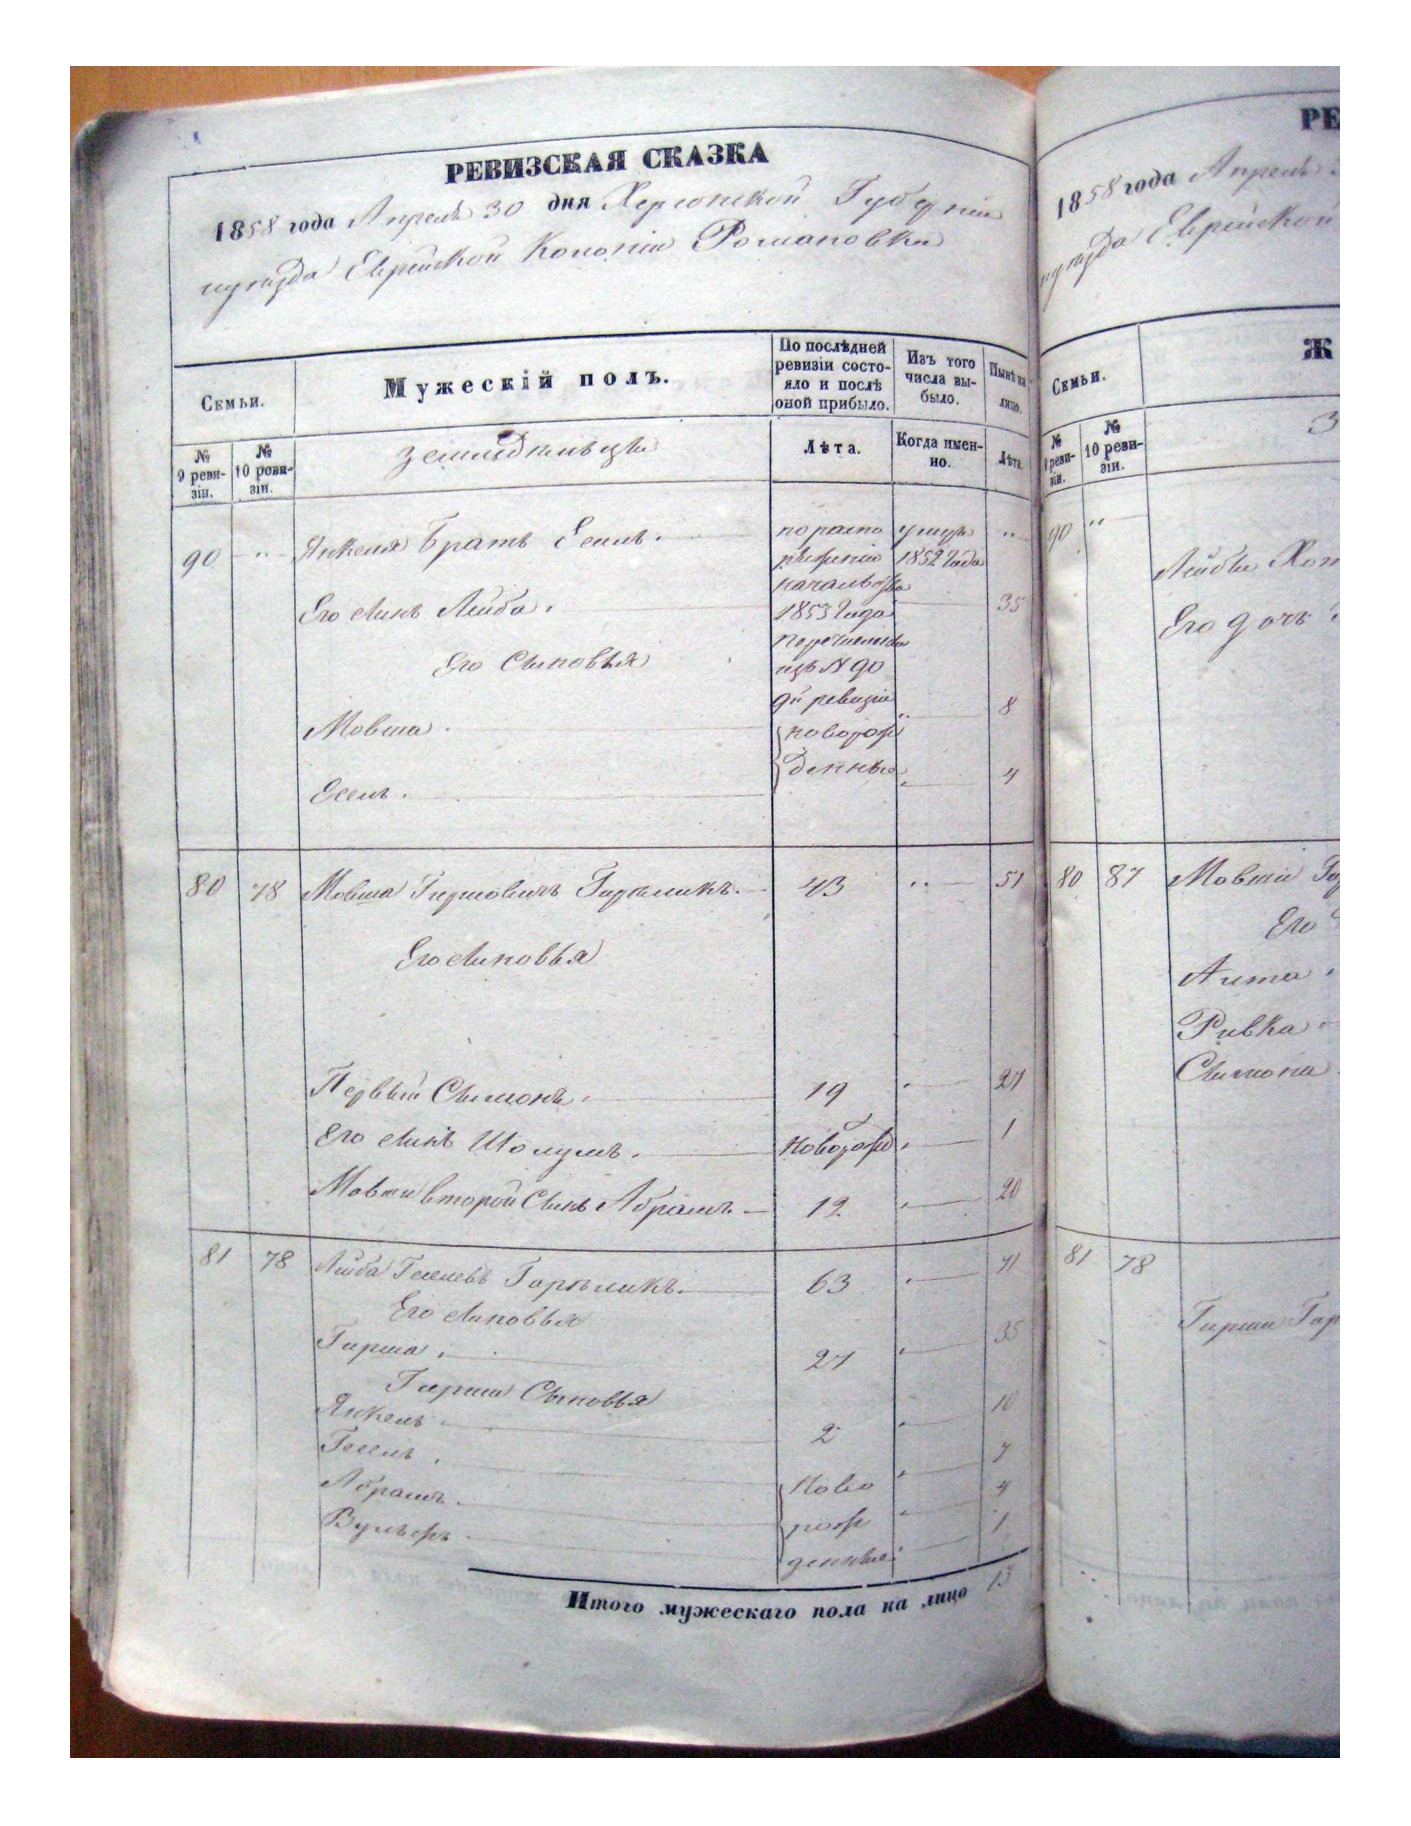 РЕВИЗСКАЯ СКАЗКА
1858 года Апреля 30 дня Херсонской Губерніи
уѣзда Еврейской Колоніи Романовки
Семьи.
Мужескій полъ.
По послѣдней ревизіи состояло и послѣ оной прибыло.
Изъ того числа выбыло.
Нынѣ на лицо.
№ 9 ревизіи.
№ 10 ревизіи.
Земледѣльцы
Лѣта.
Когда именно.
Лѣта.
90 " Янкеля Братъ Есель. по распо умеръ "
ряженію 1852 года
начальства
Его сынъ Лейба. 1853 года 35
перечисленъ
Его Сыновья изъ № 90
9й ревизіи
Мовша. новорож " 8
денные
Есель. " 4
80 78 Мовша Гиршовичъ Горѣликъ. 43 " 51
Его сыновья
Первый Симонъ. 19 " 27
Его сынъ Шолумъ. новорож " 1
Мовши второй Сынъ Абрамъ. 12 " 20
81 78 Лейба Геселевъ Горѣликъ. 63 " 71
Его сыновья
Гирша. 27 " 35
Гирши Сыновья
Янкель. 2 " 10
Гесель. " 7
Абрамъ. Ново " 4
Вульфъ. рож 1
денные
Итого мужескаго пола на лицо 13
РЕ
1858 года Апреля
уѣзда Еврейской
Семьи.
Ж
№ 9 ревизіи.
№ 10 ревизіи.
З
90 "
Лейбы
Его дочь
80 87 Мовши Гор
Его
Ривка
Симона
81 78
Гирши Гор